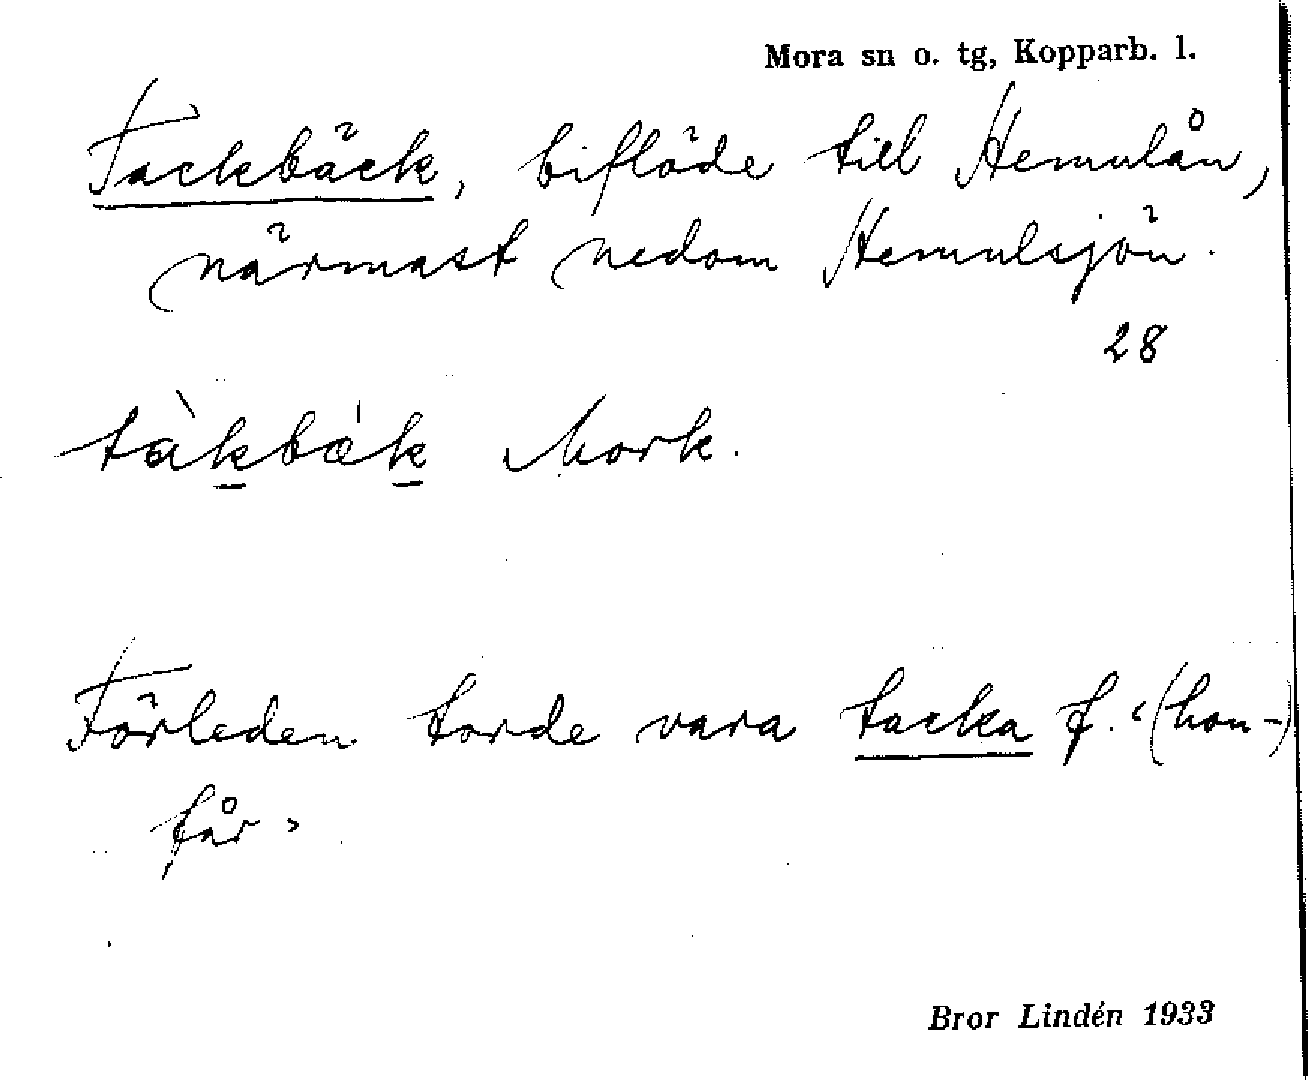 Mora sn o. tg, Kopparb. l.
Tackbäck, biflöde till Hemulån,
närmast nedom Hemulsjön.
28
tàkbæ̀k Mork.
Förleden torde vara tacka f. ‘(hon-)
får’
Bror Lindén 1933